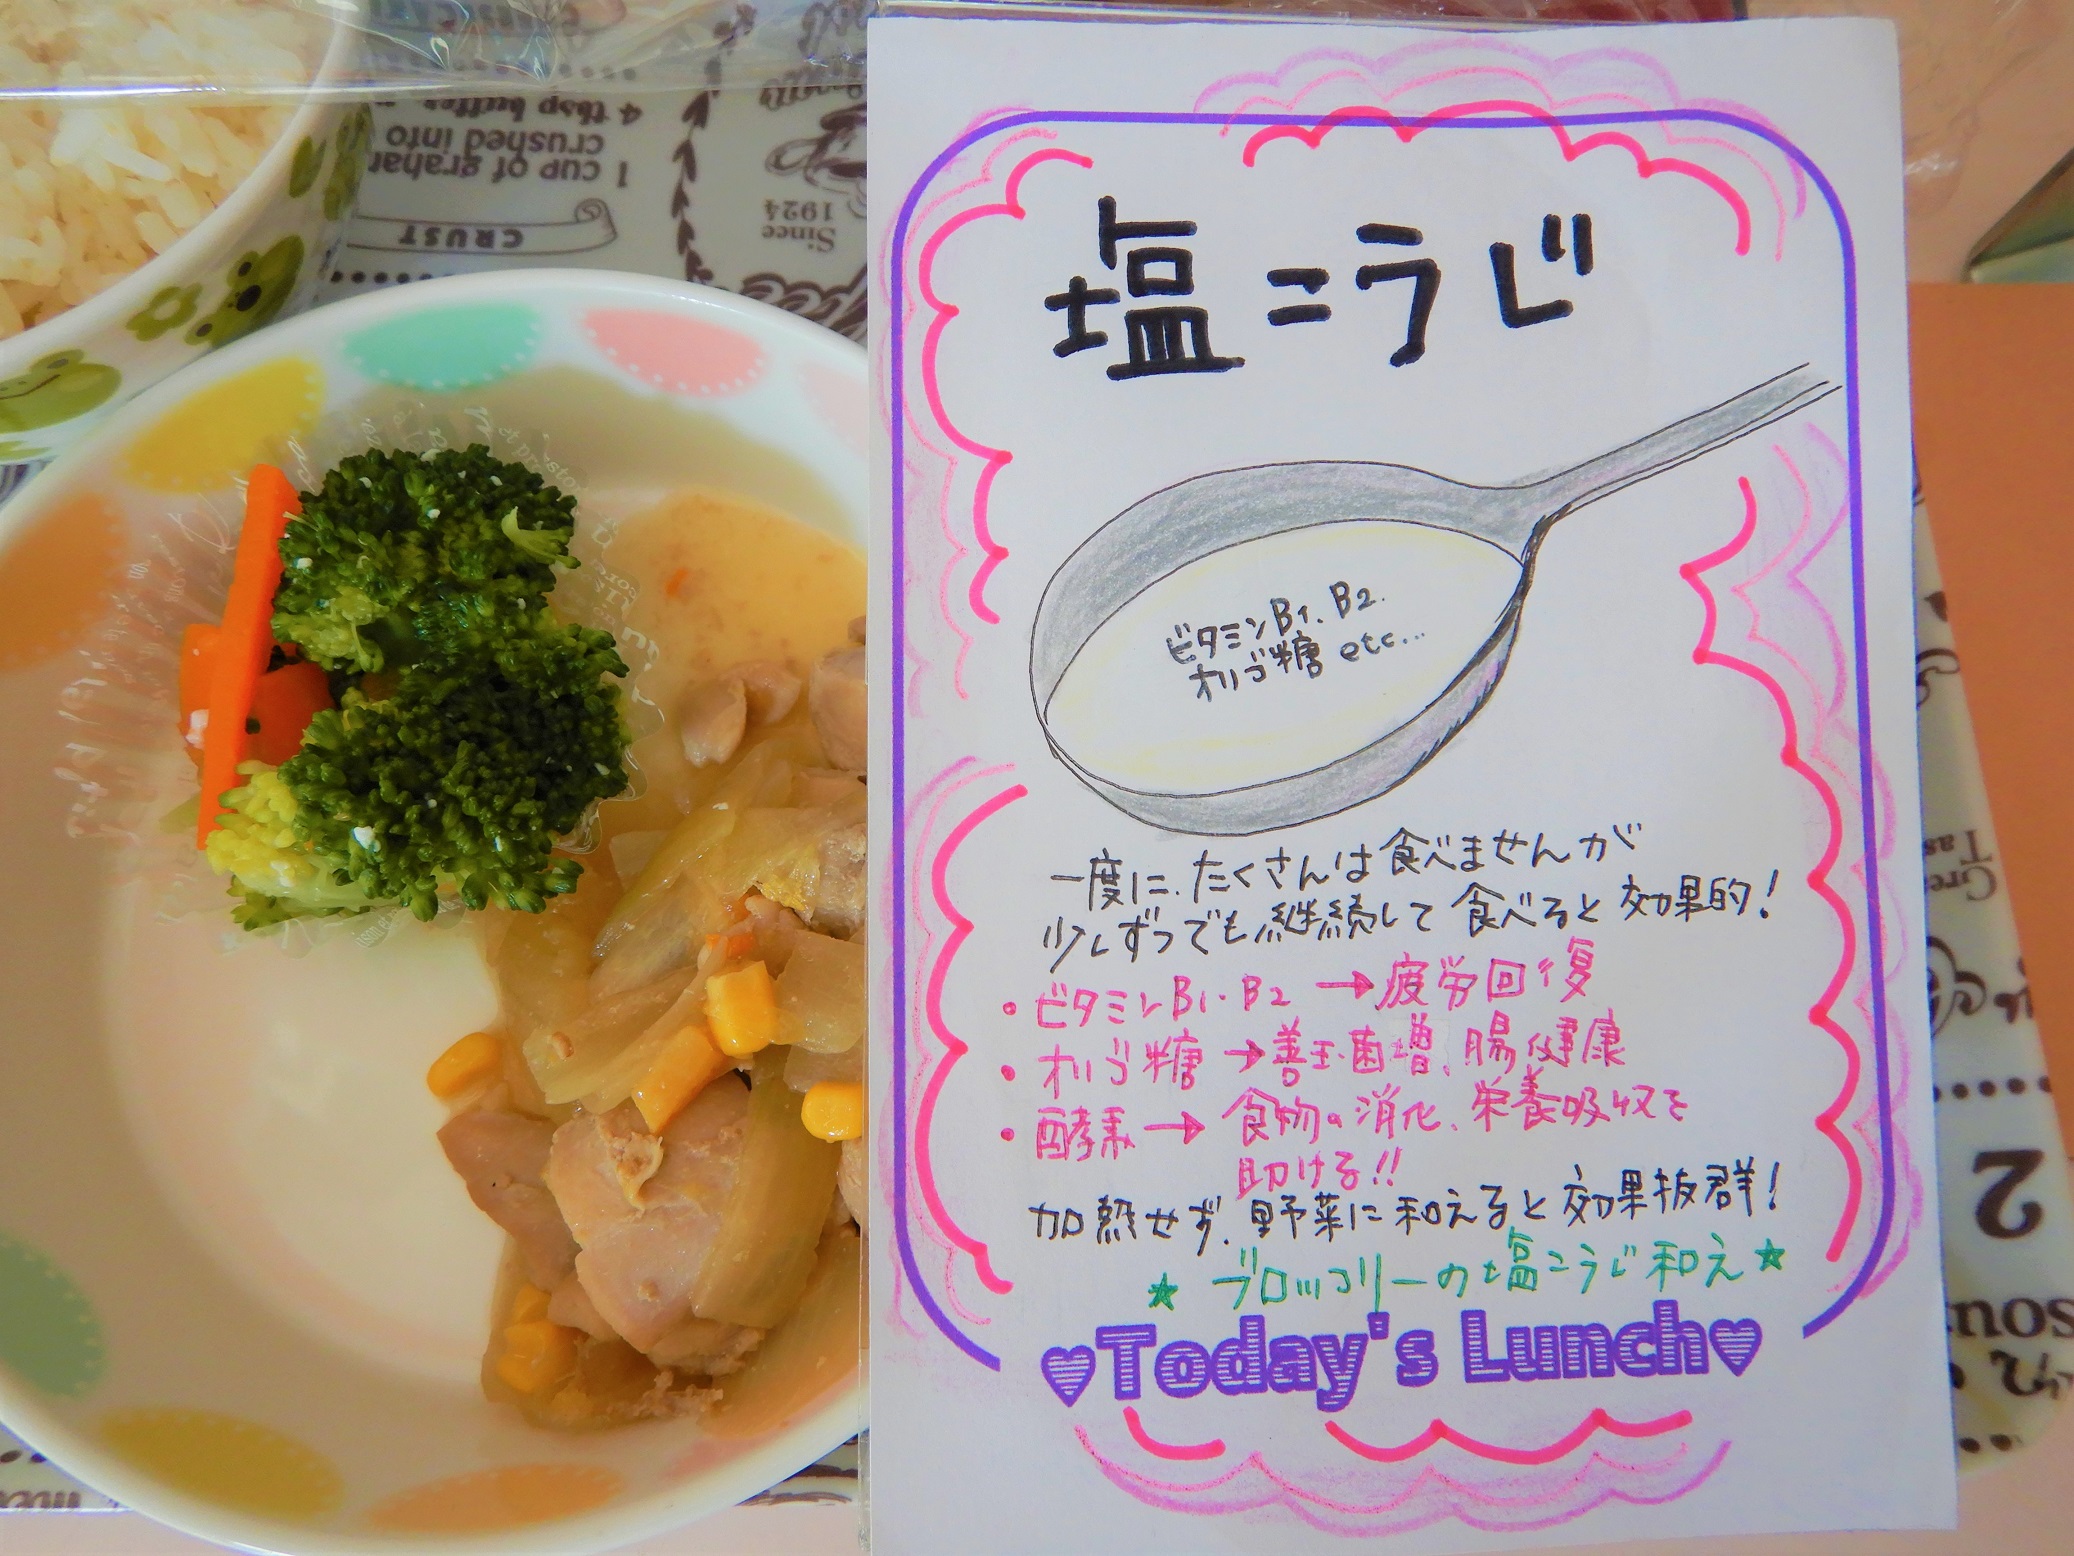 塩こうじ
ビタミンB1、B2.
オリゴ糖 etc...
一度に、たくさんは食べませんが
少しずつでも継続して食べると効果的!
・ビタミンB1・B2 →疲労回復
・オリゴ糖 →善玉菌増、腸健康
・酵素→ 食物の消化、栄養吸収を
助ける!!
加熱せず、野菜に和えると効果抜群!
★ ブロッコリーの塩こうじ和え★
♥Today's Lunch♥
CRUST
1 cup of graham
crushed into
4 tbsp butter
Since
1924
2